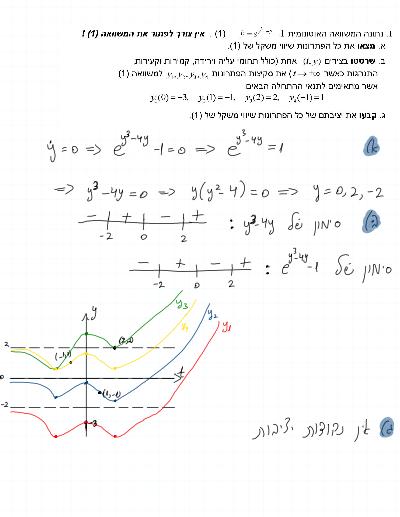 1. נתונה המשוואה האוטונומית (1) ẏ = e^{y³-4y} - 1. אין צורך לפתור את המשוואה (1)!
א. מצאו את כל הפתרונות שיווי משקל של (1).
ב. שרטטו בצירים (t, y) אחת (כולל תחומי עליה וירידה, קמירות וקעירות,
התנהגות כאשר t → ±∞) את סקיצות הפתרונות y₁, y₂, y₃, y₄ למשוואה (1)
אשר מתאימים לתנאי ההתחלה הבאים
y₁(0) = -3, y₂(1) = -1, y₃(2) = 2, y₄(-1) = 1
ג. קבעו את יציבתם של כל הפתרונות שיווי משקל של (1).
א) ẏ = 0 => e^{y³-4y} - 1 = 0 => e^{y³-4y} = 1
=> y³-4y = 0 => y(y²-4) = 0 => y = 0, 2, -2
ב) סימון של y³-4y : - + - +
-2 0 2
סימון של e^{y³-4y} - 1 : - + - +
-2 0 2
y
y₃
y₄
y₂
y₁
2
(2,2)
(-1,1)
0
t
(1,-1)
-2
-3
ג) אין נקודות יציבות